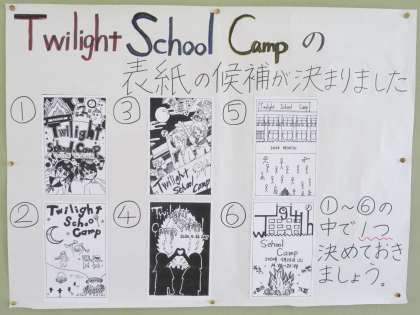 Twilight School Camp の
表紙の候補が決まりました
①
Twilight
School Camp
③
Twilight
School Camp
⑤
Twilight School Camp
②
Twilight
School
Camp
④
Twilight
School Camp
⑥
Twilight
School
Camp
①〜⑥の
中で1つ
決めておき
ましょう。